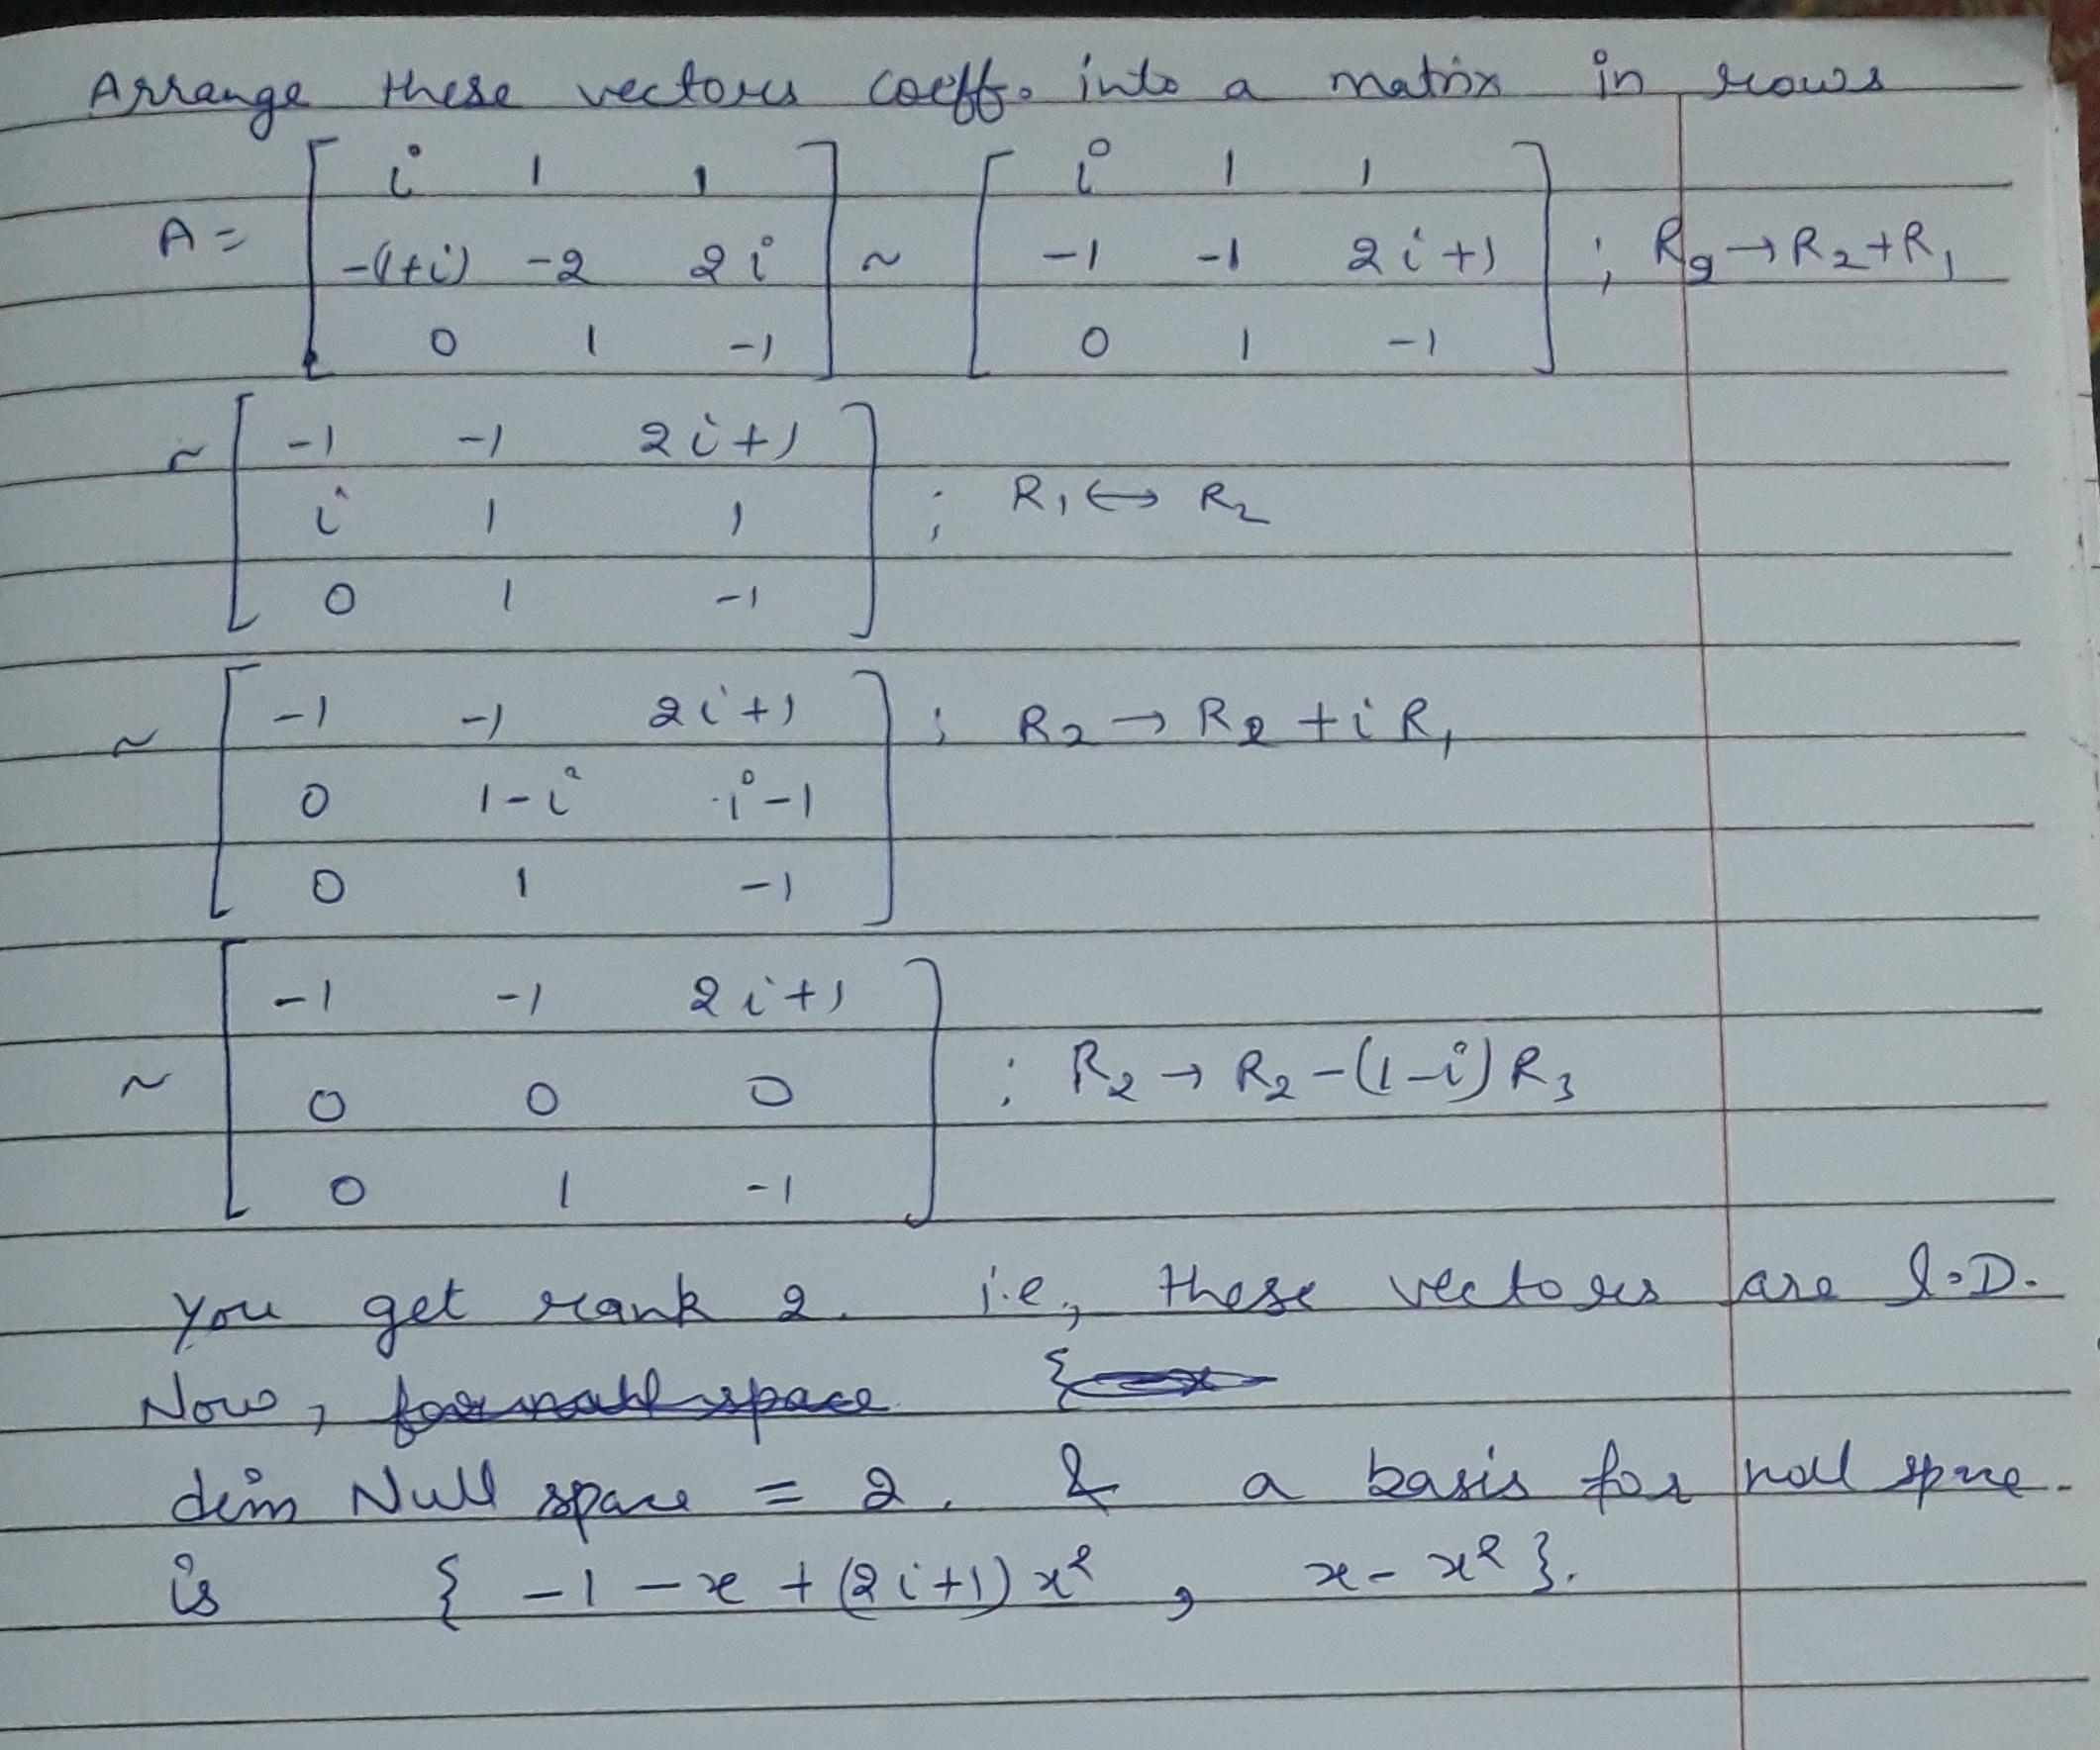 Arrange these vectors coeff. into a matrix in rows
A = [ i 1 1 ; -(1+i) -2 2i ; 0 1 -1 ] ~ [ i 1 1 ; -1 -1 2i+1 ; 0 1 -1 ] ; R2 → R2 + R1
~ [ -1 -1 2i+1 ; i 1 1 ; 0 1 -1 ] ; R1 ↔ R2
~ [ -1 -1 2i+1 ; 0 1-i i-1 ; 0 1 -1 ] ; R2 → R2 + i R1
~ [ -1 -1 2i+1 ; 0 0 0 ; 0 1 -1 ] ; R2 → R2 - (1-i) R3
You get rank 2. i.e, these vectors are l.D.
Now, for null space {
dim Null space = 2. & a basis for null spce.
is { -1 - x + (2i+1)x² , x - x² }.